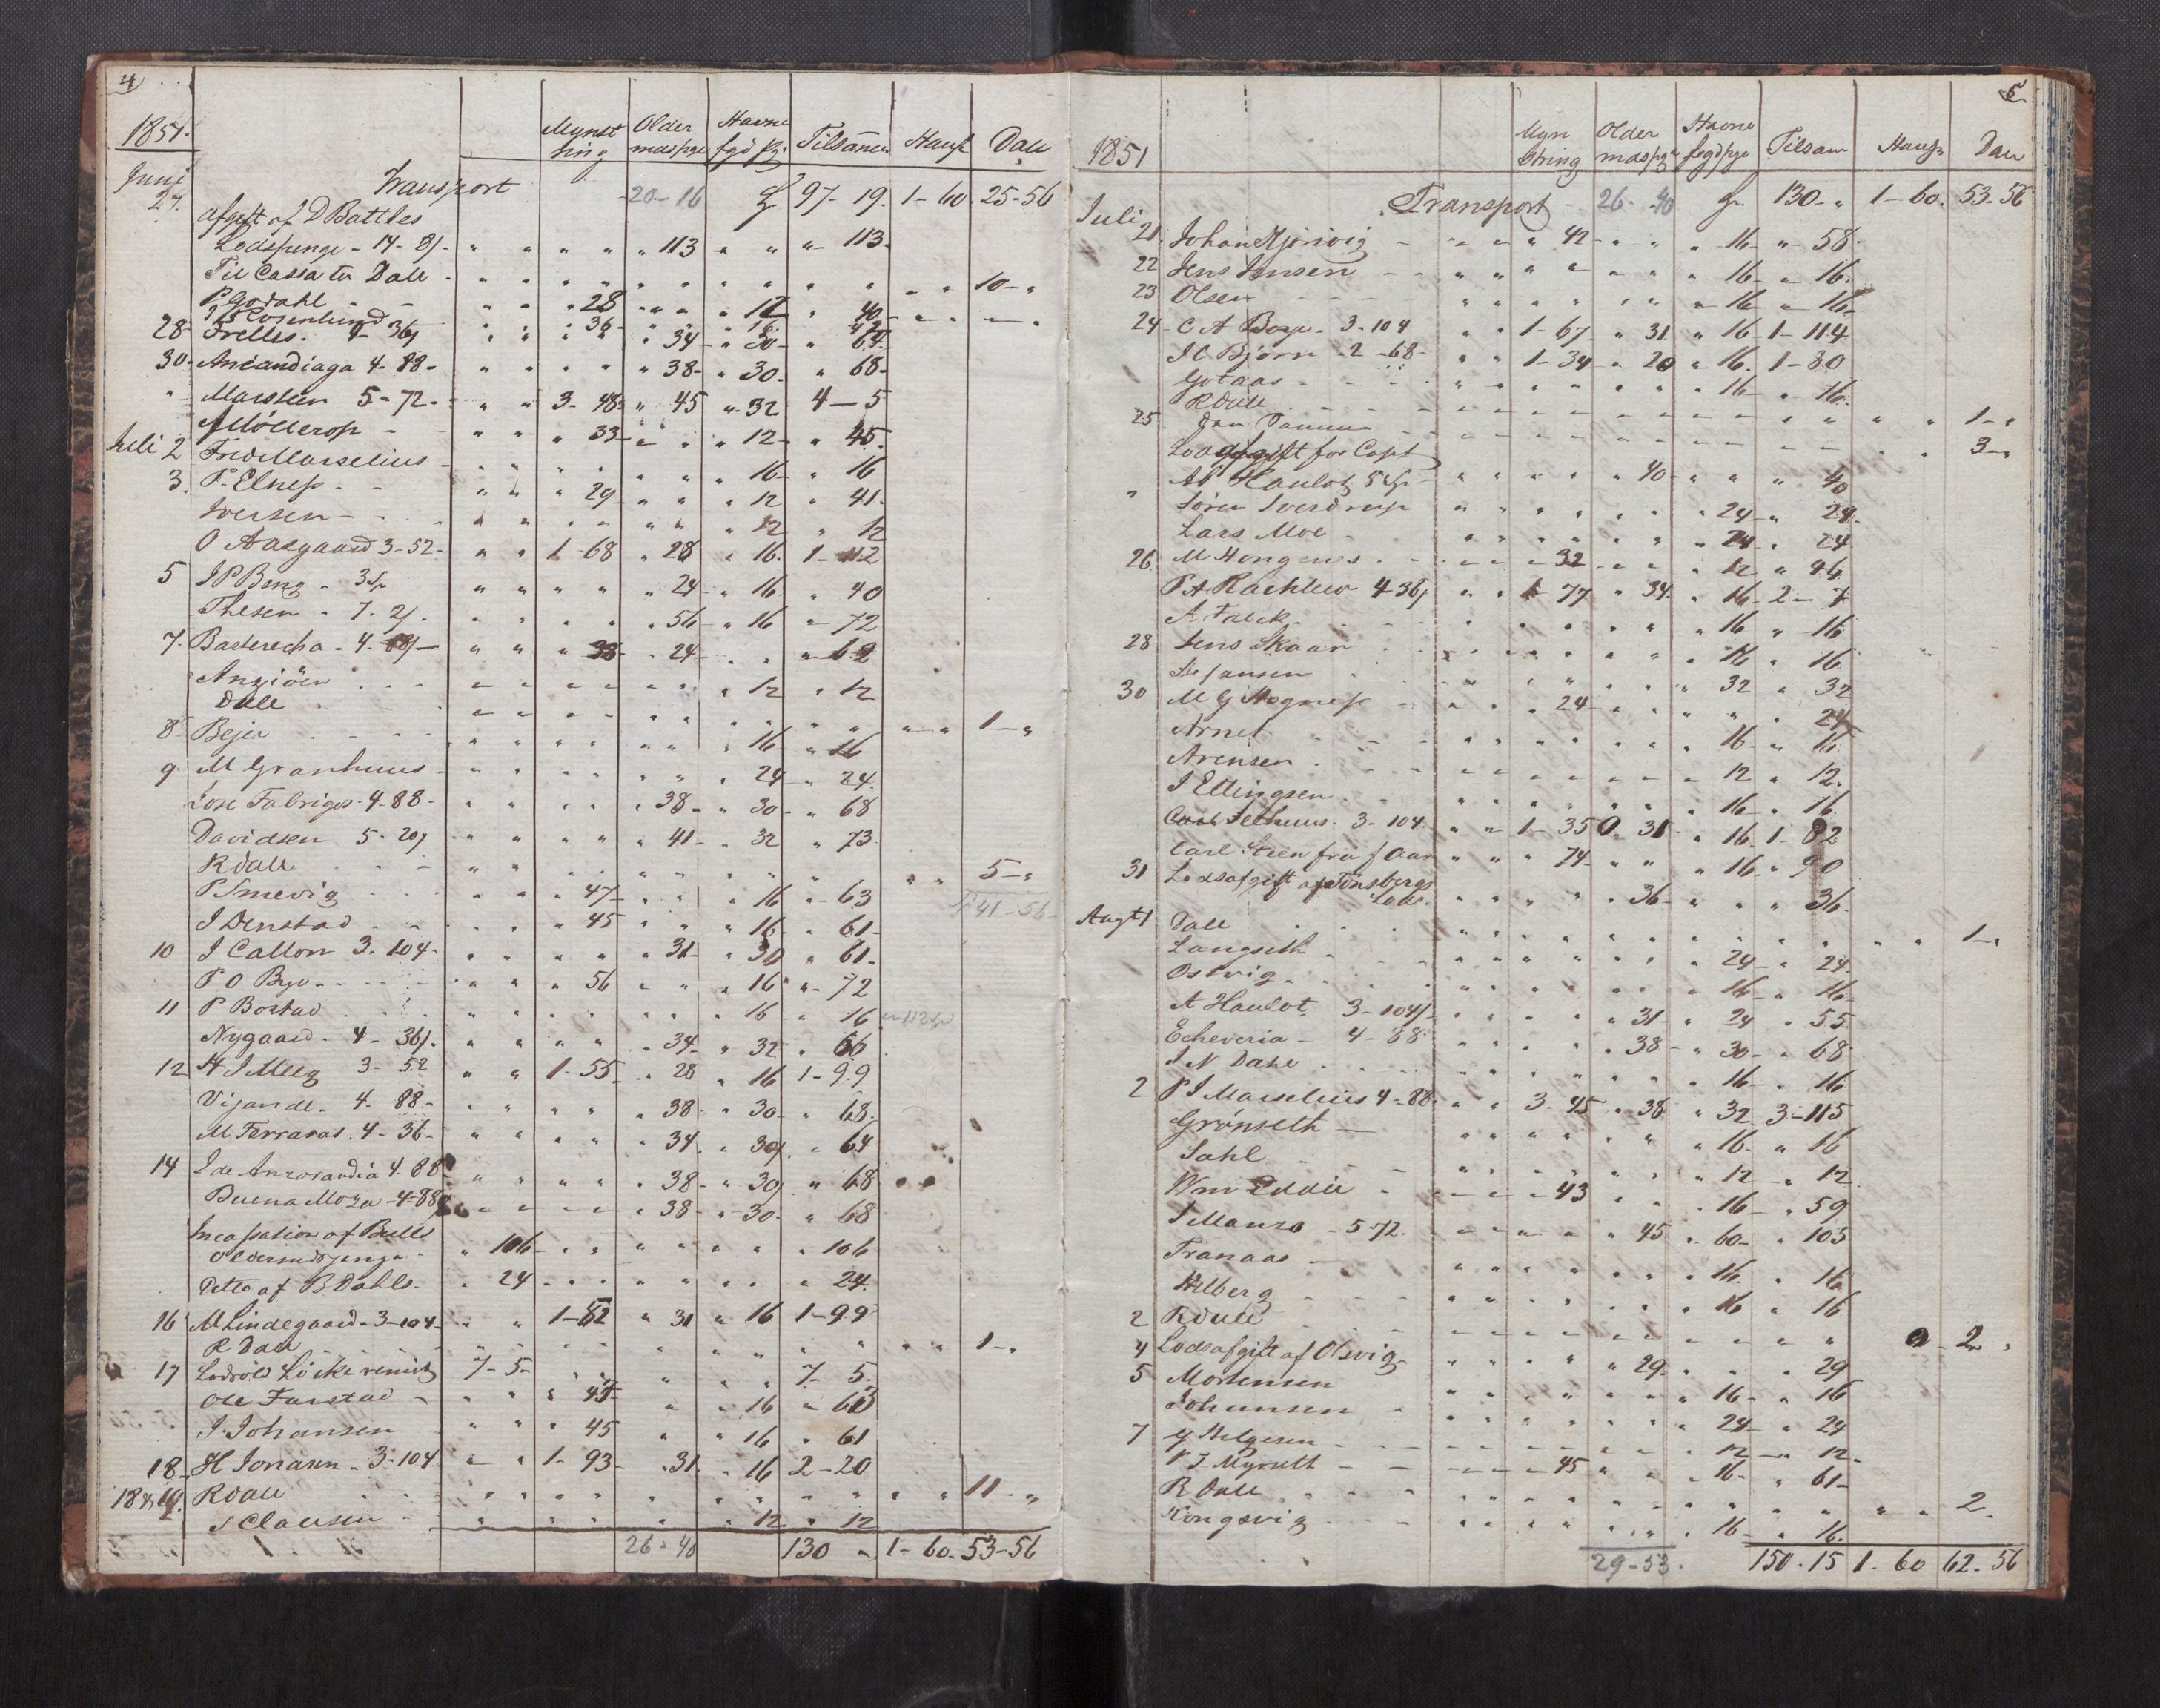 4
1851.
Mynst
ring
Older
mdspge
Havne
fgd pg.
Tilsamen
Dall
Juni
Transport 20-16 97-19. 1-60. 25-56
27. Afgift af D Battles
Lodspenge - 14-8/- " " " " " 113 - " " " 113.
Til Cassa Dall - " " " " 10 - "
" " " 28 " " " 12 " 40
28 Frelles. 4-36/ " " " " " 34 - " 30 - " 64.
30 - 4-88 - " " " " " 38 - " 30 - " 68 -
" Marstein 5-72 - " " 3-48 - " 45 " 32 4-5
" " " 33 - " " " 12 - " 45.
Juli 2 Fred Marselius - " " " " " " " 16 - " 16
3. P. Elness - " " " 29 - " " " 12 " 41.
Iversen - " " " " " " " 12 " 12
O Aasgaard 3-52 - " " 1-68 " 28 " 16. 1-112
5 I P Berg - " " " " " 24 - " 16 " 40
Thesen - 7. 2/. " " " " " 56 - " 16 " 72
7. Basterecha - 4. " " " 38 - " 24 - " " " 62
" " " " " " " 12 " 12
Dall " " " " " " " " 1 - "
8 Bejer " " " " " " " 16 " 16
9 M Granhuus - " " " " " " " 24 " 24.
Jose Fabriges - 4-88 - " " " " " 38 - " 30 - " 68
Davidsen 5-20/ " " " " " 41 - " 32 " 73
R Dall " " " " " " 5 - "
P Smevig " " " 47 - " " " 16 " 63 41-56
I Denstad " " " 45 " " " 16 - " 61 -
10 I Callon 3-104 - " " " " " 31 - " 30 " 61 -
P O Bye - " " " 56 " " " 16 " 72
11 P Bostad " " " " " " " 16 " 16
Nygaard - 4-36/. " " " " " 34 - " 32 " 66
12 H I Meeg 3-52 " " 1-55 - " 28 " 16 1-99
Vijande. 4-88 - " " " " " 38 - " 30 - " 68.
M Ferraras. 4-36 - " " " " " 34. " 30/. " 64
14 I de 4-88 " " " " " 38 - " 30/ " 68
Buena Moza - 4-88/ " " " " " 38 - " 30 - " 68
Incassation af Bulls
Oldermdspenge - " 106 - " " " " " " " 106
Detto af B Dahls. " 24 - " " " " " " " 24.
16 M Lindegaard - 3-104 - " " 1-52 " 31 " 16 1-99
R Dall " " " " " " 1 - "
17 Lodsold Löcke remit 7-5 - " " " " 7-5.
Ole Farstad - " " " " " 16 "
I. Johansen " " " 45 " " " 16 " 61
18 - H Jonasen - 3-104. " " 1-93 - " 31. " 16 2-20
18 & 19. R Dall " " " " " " 11 - "
S Clausen - " " " " " " " 12 " 12
26-40 130 - " 1-60. 53-56
5
1851
Myn
string
Older
mdspge
Havne
fogdpge
Tilsam
Dall
Transport - 26-40 130 - " 1-60. 53-56
Juli 21. Johan - " " " 42 - " " " 16 - " 58.
22 Jens Jensen - " " " " " " " 16 - " 16.
23 Olsen " " " " " " " 16 " 16
24 - C A Boye - 3-104 " " 1-67 " 31 " 16 1-114
I C Bjørn - 2-68 - " " 1-34 - " 20 " 16. 1-80
Gotaas - " " " " " " " 16 - " 16.
R Dall " " " " " " 1 - "
25 " " " " " " 3 - "
Lodsafgift for Capt
Haulot 5 " " " " " 40 - " " " 40
" Søren Sverdrup " " " " " " " 24 - " 24.
Lars Moe - " " " " " " " 24 " 24
26 M Hongenes " " " 32 " " " 12 "
P A Rachlew 4-36/ " " 1-77 " 34. " 16 - 2-7
A Falck " " " " " " " 16 " 16
28 Jens Skaar " " " " " " " 16 " 16
Jansen " " " " " " " 32 " 32
30 M G Hogness - " " " 24 - " " " " " 24
Arnet " " " " " " " 16 - " 16
Arensen " " " " " " " 12 " 12.
I Ellingsen " " " " " " " 16 " 16
3-104. " " 1-35 31 " 16 1-82
Carl Steen fra " " " 74 - " " " 16 " 90
31 Lodsafgift af Tønsbergs
Lods. " " " " " 36 - " " " 36.
Augt 1 Dall " " " " " " 1 - "
Langseth " " " " " " " 24 - " 24.
Ostvig " " " " " " " 16 - " 16 -
A Haulot 3-104/. " " " " " 31 - " 24 " 55
Echeveria - 4-88 " " " " " 38 - " 30 - " 68
I N Dahl " " " " " " " 16 - " 16
2 P I Marselius 4-88. " " 3-45 " 38 " 32 3-115
Grønseth - " " " " " " " 16 - " 16
Sahl " " " " " " " 12 - " 12
Wm Eddie - " " " 43 " " " 16 - " 59
I Manzo - 5-72. " " " " " 45 " 60 - " 105
Tranaas - " " " " " " " 16. " 16
Hilberg " " " " " " " 16 " 16
2 R Dall " " " " " " 2 "
4 Lodsafgift af Olsvig " " " " " 29 - " " " 29
5 Mortensen " " " " " " " 16 - " 16
Johansen - " " " " " " " 24 - " 24
7 G Helgesen - " " " " " " " 12 " 12 -
P I Myrseth - " " " 45 " " " 16 - " 61 -
R Dall " " " " " " 2 -
Kongsvig " " " " " " " 16 - " 16.
29-53. 150-15 1-60 62-56